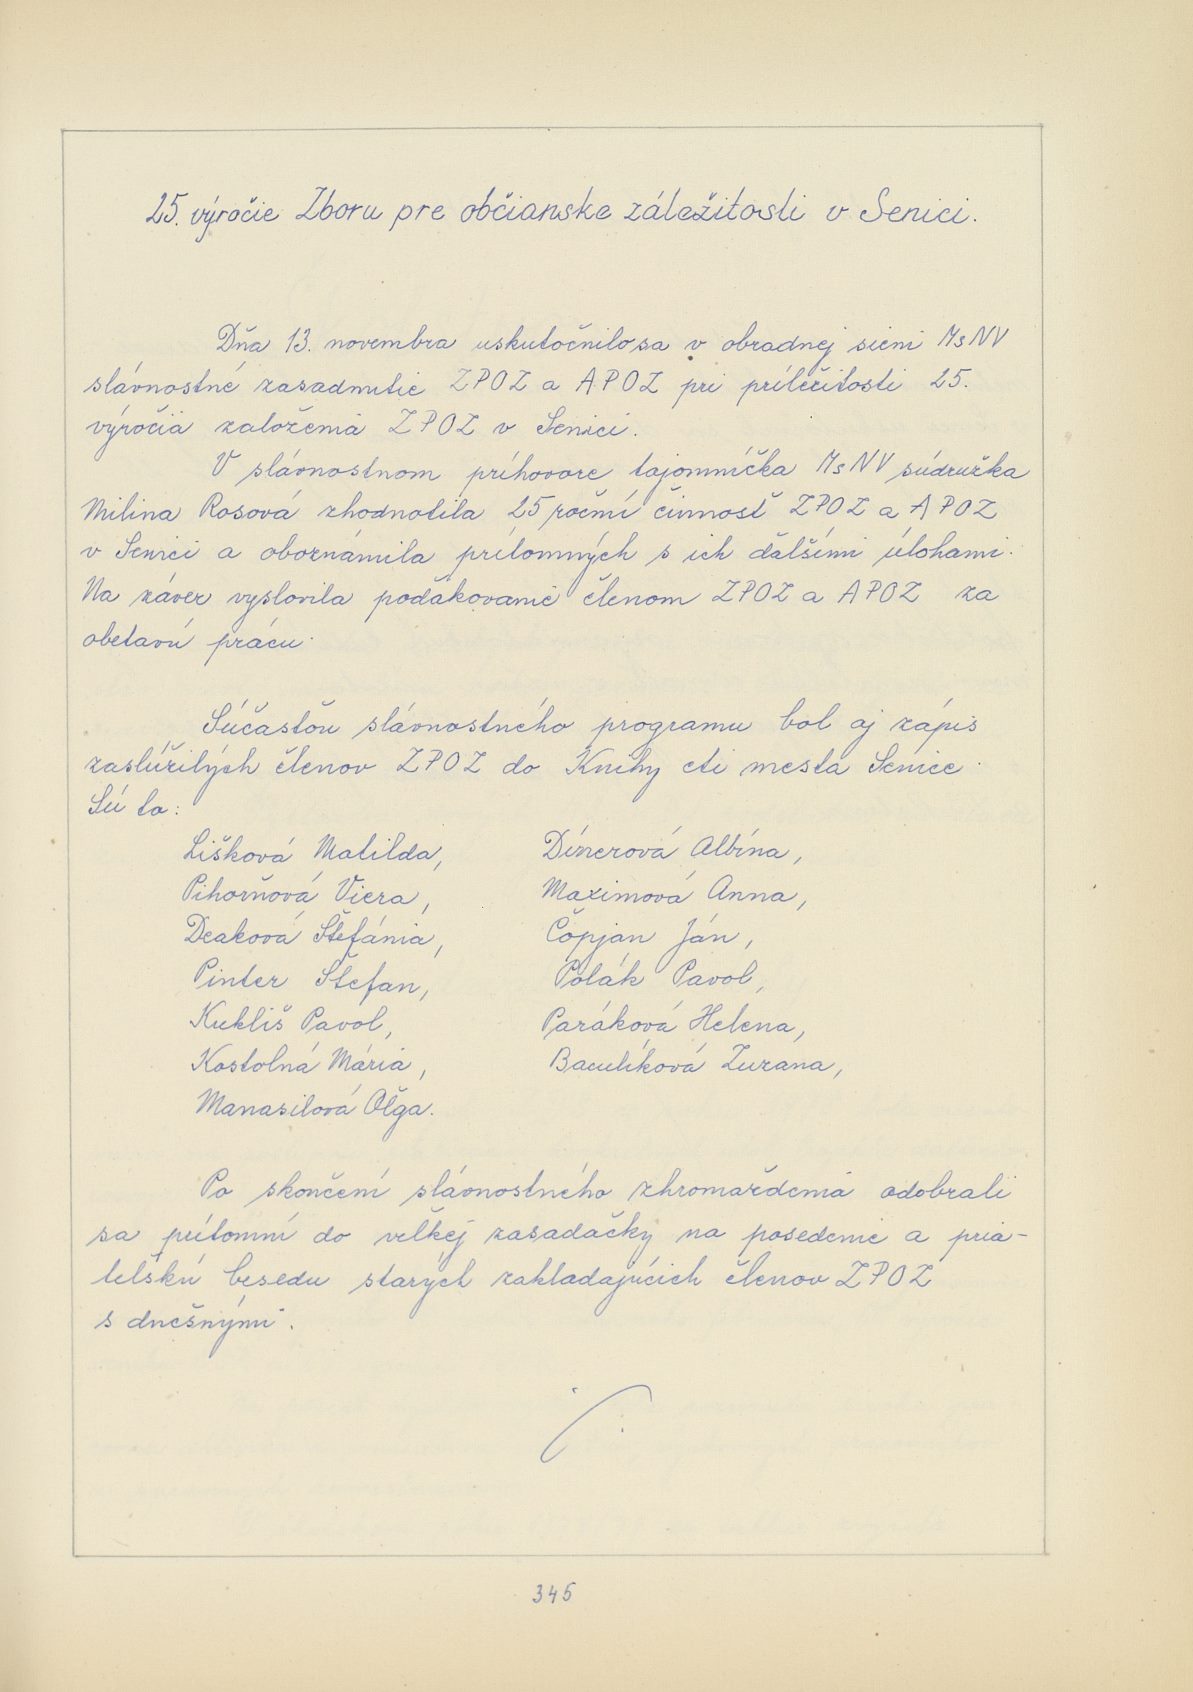 25. výročie Zboru pre občianske záležitosti v Senici.
Dňa 13. novembra uskutočnilo sa v obradnej sieni MsNV
slávnostné zasadnutie ZPOZ a APOZ pri príležitosti 25.
výročia založenia ZPOZ v Senici.
V slávnostnom príhovore tajomníčka MsNV súdružka
Milina Rosová zhodnotila 25 ročnú činnosť ZPOZ a APOZ
v Senici a oboznámila prítomných s ich ďalšími úlohami.
Na záver vyslovila poďakovanie členom ZPOZ a APOZ za
obetavú prácu.
Súčasťou slávnostného programu bol aj zápis
zaslúžilých členov ZPOZ do Knihy cti mesta Senice.
Sú to:
Lišková Matilda, Dinerová Albína,
Pihorňová Viera, Maximová Anna,
Deaková Štefánia, Čopjan Ján,
Pinter Štefan, Polák Pavol,
Kukliš Pavol, Paráková Helena,
Kostolná Mária, Baculíková Zuzana,
Manasilová Oľga.
Po skončení slávnostného zhromaždenia odobrali
sa prítomní do veľkej zasadačky na posedenie a pria-
teľskú besedu starých zakladajúcich členov ZPOZ
s dnešnými.
345